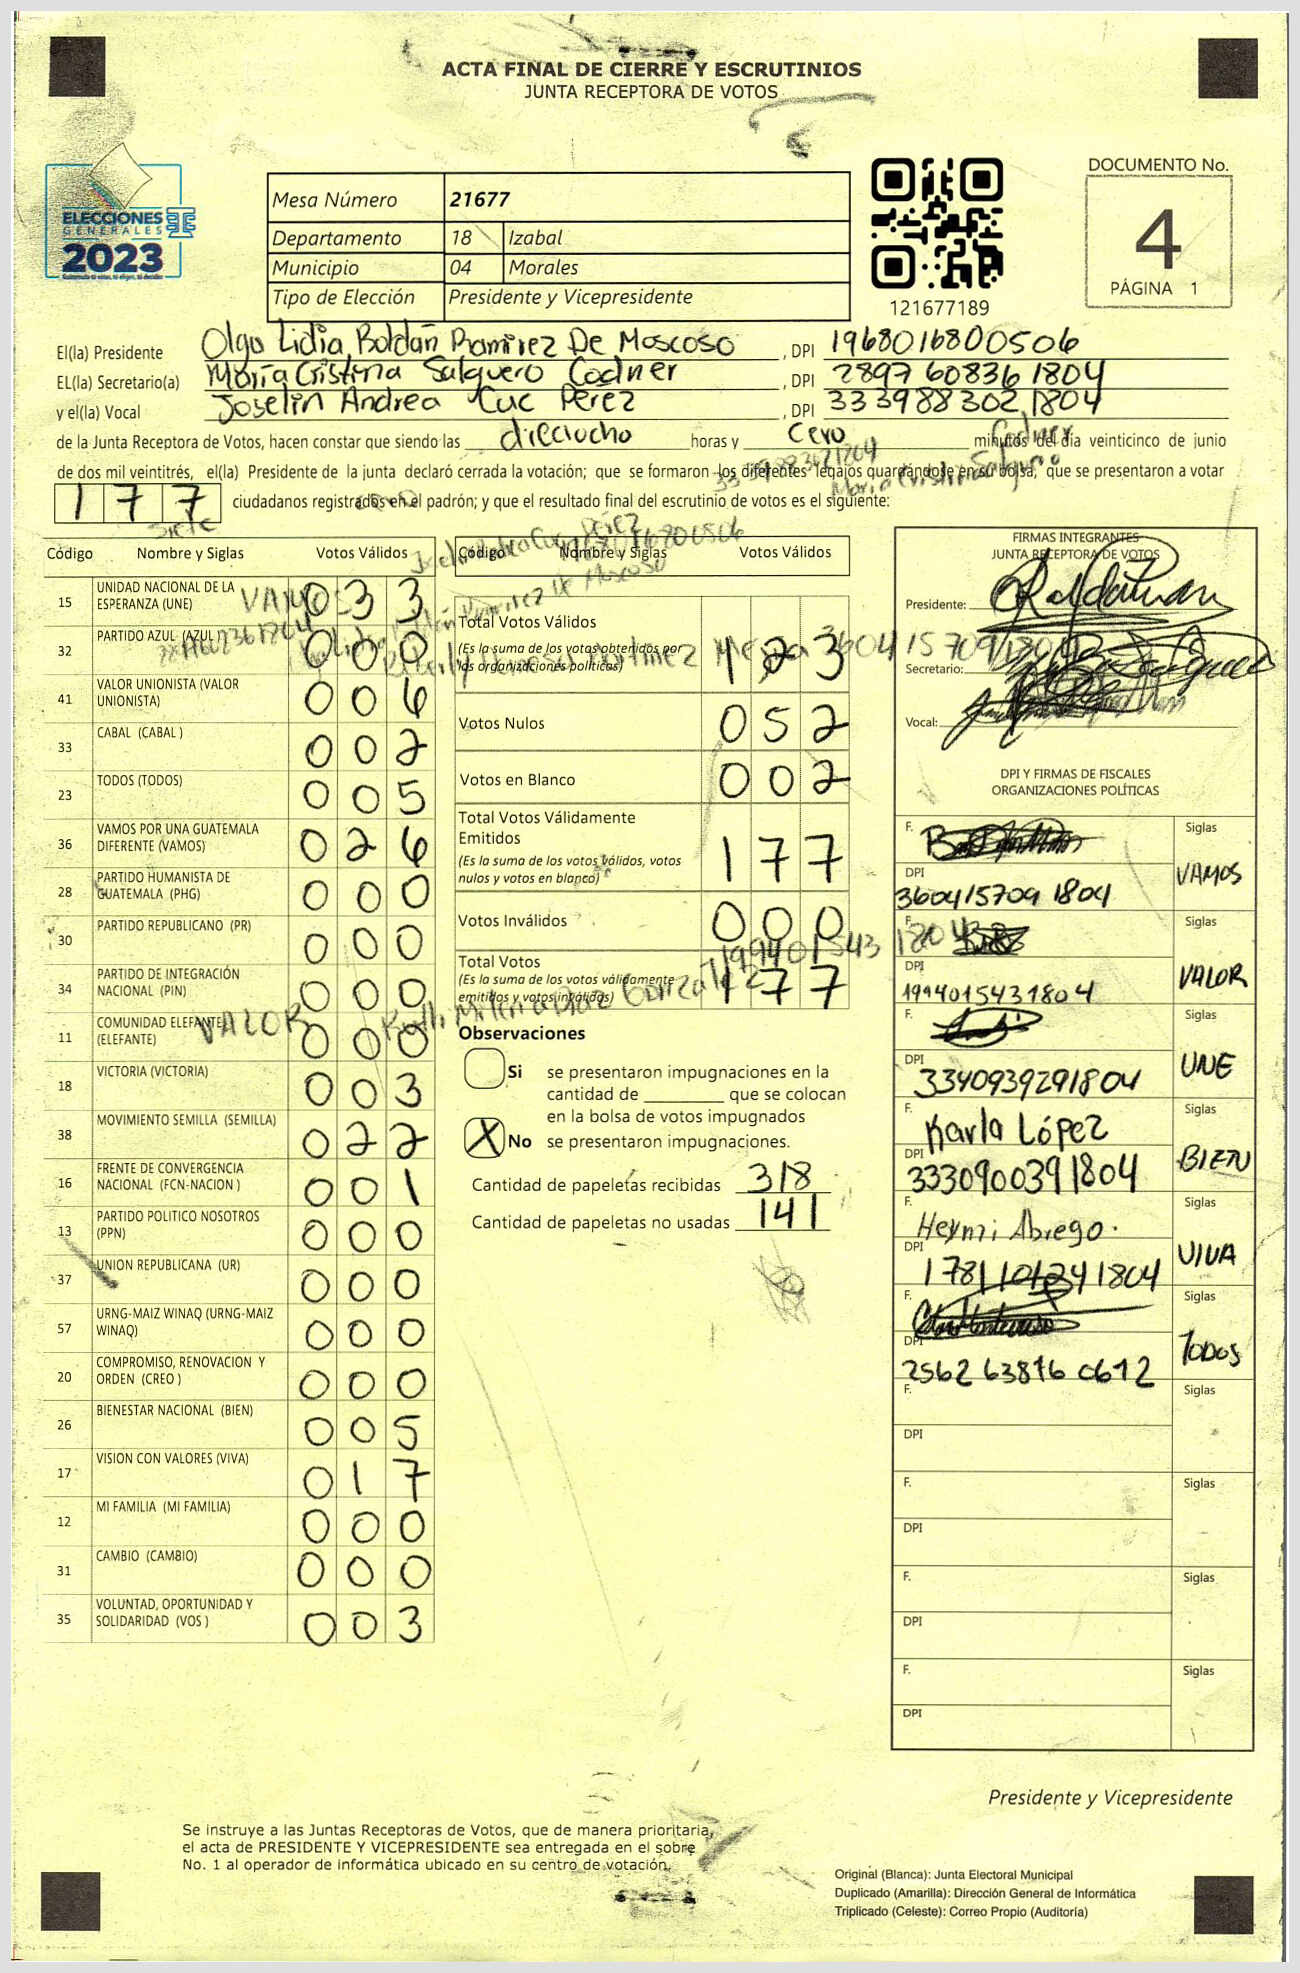 ACTA FINAL DE CIERRE Y ESCRUTINIOS
JUNTA RECEPTORA DE VOTOS
ELECCIONES
GENERALES
2023
Mesa Número 21677
Departamento 18 Izabal
Municipio 04 Morales
Tipo de Elección Presidente y Vicepresidente
121677189
DOCUMENTO No.
4
PÁGINA 1
El(la) Presidente Olga Lidia Roldán Ramirez De Moscoso , DPI 1968016800506
EL(la) Secretario(a) María Cristina Salguero Codner , DPI 2897 60836 1804
y el(la) Vocal Joselin Andrea Cuc Pérez , DPI 333988302 1804
de la Junta Receptora de Votos, hacen constar que siendo las dieciocho horas y cero minutos del día veinticinco de junio
de dos mil veintitrés, el(la) Presidente de la junta declaró cerrada la votación; que se formaron los diferentes legajos guardándose en su bolsa, que se presentaron a votar
177 ciudadanos registrados en el padrón; y que el resultado final del escrutinio de votos es el siguiente:
Código Nombre y Siglas Votos Válidos
15 UNIDAD NACIONAL DE LA ESPERANZA (UNE) 033
32 PARTIDO AZUL (AZUL) 000
41 VALOR UNIONISTA (VALOR UNIONISTA) 006
33 CABAL (CABAL ) 002
23 TODOS (TODOS) 005
36 VAMOS POR UNA GUATEMALA DIFERENTE (VAMOS) 026
28 PARTIDO HUMANISTA DE GUATEMALA (PHG) 000
30 PARTIDO REPUBLICANO (PR) 000
34 PARTIDO DE INTEGRACIÓN NACIONAL (PIN) 000
11 COMUNIDAD ELEFANTE (ELEFANTE) 000
18 VICTORIA (VICTORIA) 003
38 MOVIMIENTO SEMILLA (SEMILLA) 022
16 FRENTE DE CONVERGENCIA NACIONAL (FCN-NACION ) 001
13 PARTIDO POLITICO NOSOTROS (PPN) 000
37 UNION REPUBLICANA (UR) 000
57 URNG-MAIZ WINAQ (URNG-MAIZ WINAQ) 000
20 COMPROMISO, RENOVACION Y ORDEN (CREO ) 000
26 BIENESTAR NACIONAL (BIEN) 005
17 VISION CON VALORES (VIVA) 017
12 MI FAMILIA (MI FAMILIA) 000
31 CAMBIO (CAMBIO) 000
35 VOLUNTAD, OPORTUNIDAD Y SOLIDARIDAD (VOS ) 003
VAMOS
VALOR
Código Nombre y Siglas Votos Válidos
Total Votos Válidos 123
(Es la suma de los votos obtenidos por
las organizaciones políticas)
Votos Nulos 052
Votos en Blanco 002
Total Votos Válidamente
Emitidos 177
(Es la suma de los votos válidos, votos
nulos y votos en blanco)
Votos Inválidos 000
Total Votos 177
(Es la suma de los votos válidamente
emitidos y votos inválidos)
Observaciones
Si se presentaron impugnaciones en la
cantidad de ________ que se colocan
en la bolsa de votos impugnados
X No se presentaron impugnaciones.
Cantidad de papeletas recibidas 318
Cantidad de papeletas no usadas 141
FIRMAS INTEGRANTES
JUNTA RECEPTORA DE VOTOS
Presidente:
Secretario:
Vocal:
DPI Y FIRMAS DE FISCALES
ORGANIZACIONES POLÍTICAS
F. Siglas VAMOS
DPI 3604157091804
F. Siglas VALOR
DPI 1994015431804
F. Siglas UNE
DPI 3340939291804
F. Karla López Siglas BIEN
DPI 3330900391804
F. Heymi Abrego. Siglas VIVA
DPI 1781101241804
F. Siglas TODOS
DPI 2562 63876 0612
F. Siglas
DPI
F. Siglas
DPI
F. Siglas
DPI
F. Siglas
DPI
Presidente y Vicepresidente
Se instruye a las Juntas Receptoras de Votos, que de manera prioritaria,
el acta de PRESIDENTE Y VICEPRESIDENTE sea entregada en el sobre
No. 1 al operador de informática ubicado en su centro de votación.
Original (Blanca): Junta Electoral Municipal
Duplicado (Amarilla): Dirección General de Informática
Triplicado (Celeste): Correo Propio (Auditoría)